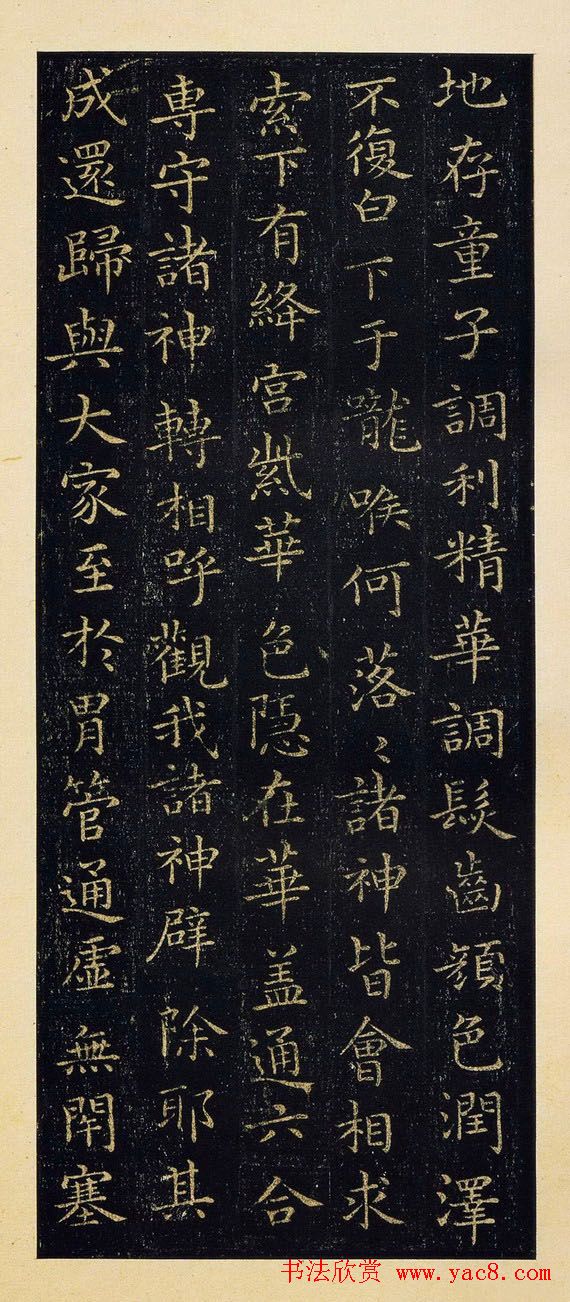 地存童子調利精華調髮齒顏色潤澤
不復白下于嚨喉何落〻諸神皆會相求
索下有絳宮紫華色隱在華盖通六合
專守諸神轉相呼觀我諸神辟除耶其
成還歸與大家至於胃管通虛無閉塞
书法欣赏 www.yac8.com